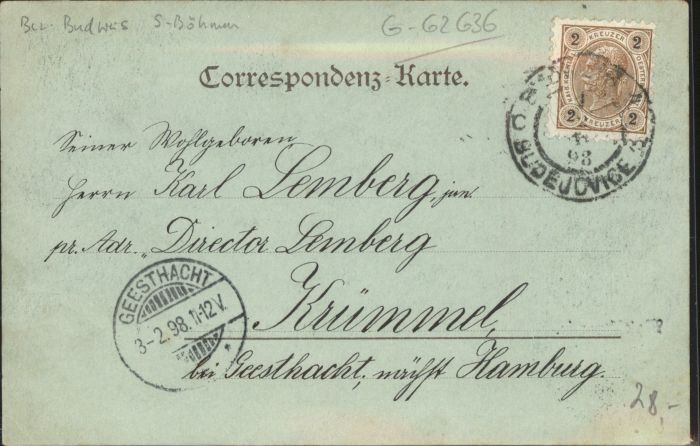 Bez. Budweis S-Böhmen G-62636
Correspondenz-Karte.
2 KREUZER 2
2 KREUZER 2
BUDĚJOVICE
98
Seiner Wohlgeboren
Herrn Karl Lemberg, jun.
pr. Adr. „Director Lemberg
Krümmel,
bei Geesthacht, nächst Hamburg.
GEESTHACHT
3-2.98.11-12V.
28,-